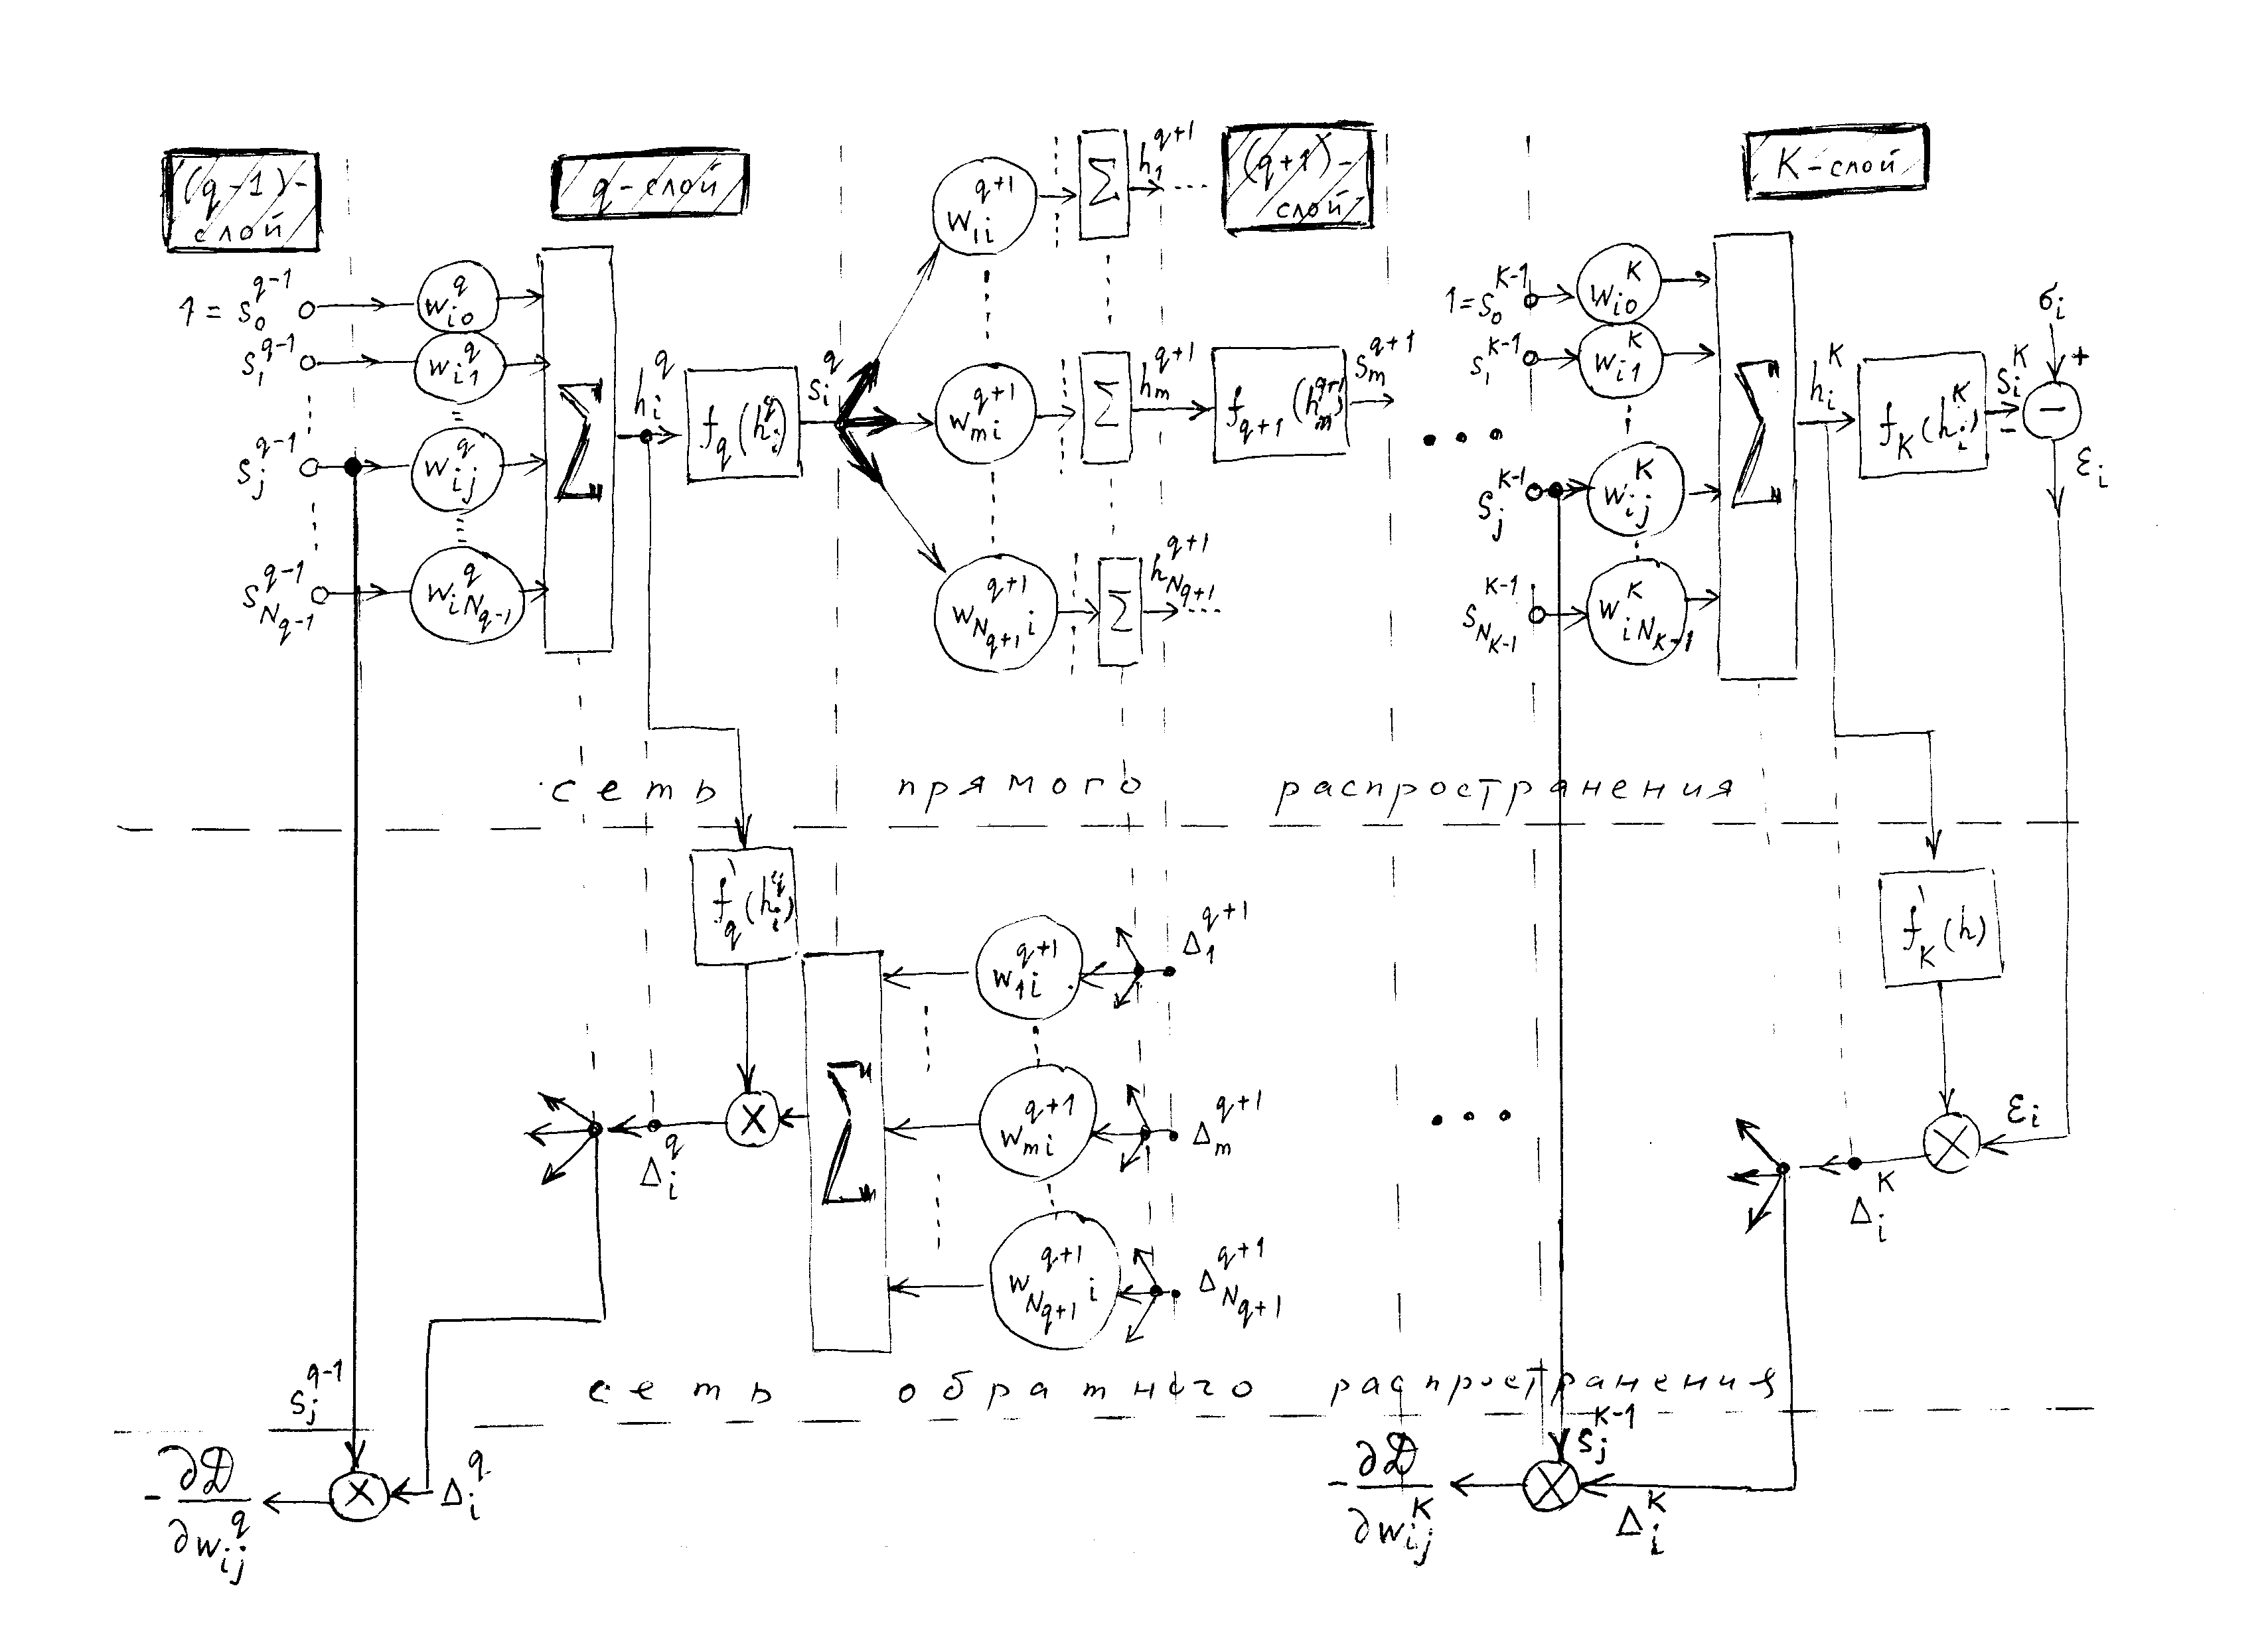 (q-1)-
слой
q-слой
(q+1)-
слой
K-слой
1 = s_0^{q-1}
s_1^{q-1}
s_j^{q-1}
s_{N_{q-1}}^{q-1}
w_{i0}^q
w_{i1}^q
w_{ij}^q
w_{iN_{q-1}}^q
Σ
h_i^q
f_q(h_i^q)
s_i^q
w_{1i}^{q+1}
Σ
h_1^{q+1}
...
w_{mi}^{q+1}
Σ
h_m^{q+1}
f_{q+1}(h_m^{q+1})
s_m^{q+1}
w_{N_{q+1}i}^{q+1}
Σ
h_{N_{q+1}}^{q+1}
...
...
1 = s_0^{K-1}
s_1^{K-1}
s_j^{K-1}
s_{N_{K-1}}^{K-1}
w_{i0}^K
w_{i1}^K
w_{ij}^K
w_{iN_{K-1}}^K
Σ
h_i^K
f_K(h_i^K)
s_i^K
σ_i
+
−
−
ε_i
сеть прямого распространения
f'_q(h_i^q)
Δ_i^q
×
Σ
w_{1i}^{q+1}
Δ_1^{q+1}
w_{mi}^{q+1}
Δ_m^{q+1}
w_{N_{q+1}i}^{q+1}
Δ_{N_{q+1}}^{q+1}
...
f'_K(h)
×
ε_i
Δ_i^K
сеть обратного распространения
s_j^{q-1}
-∂D/∂w_{ij}^q
×
Δ_i^q
s_j^{K-1}
-∂D/∂w_{ij}^K
×
Δ_i^K